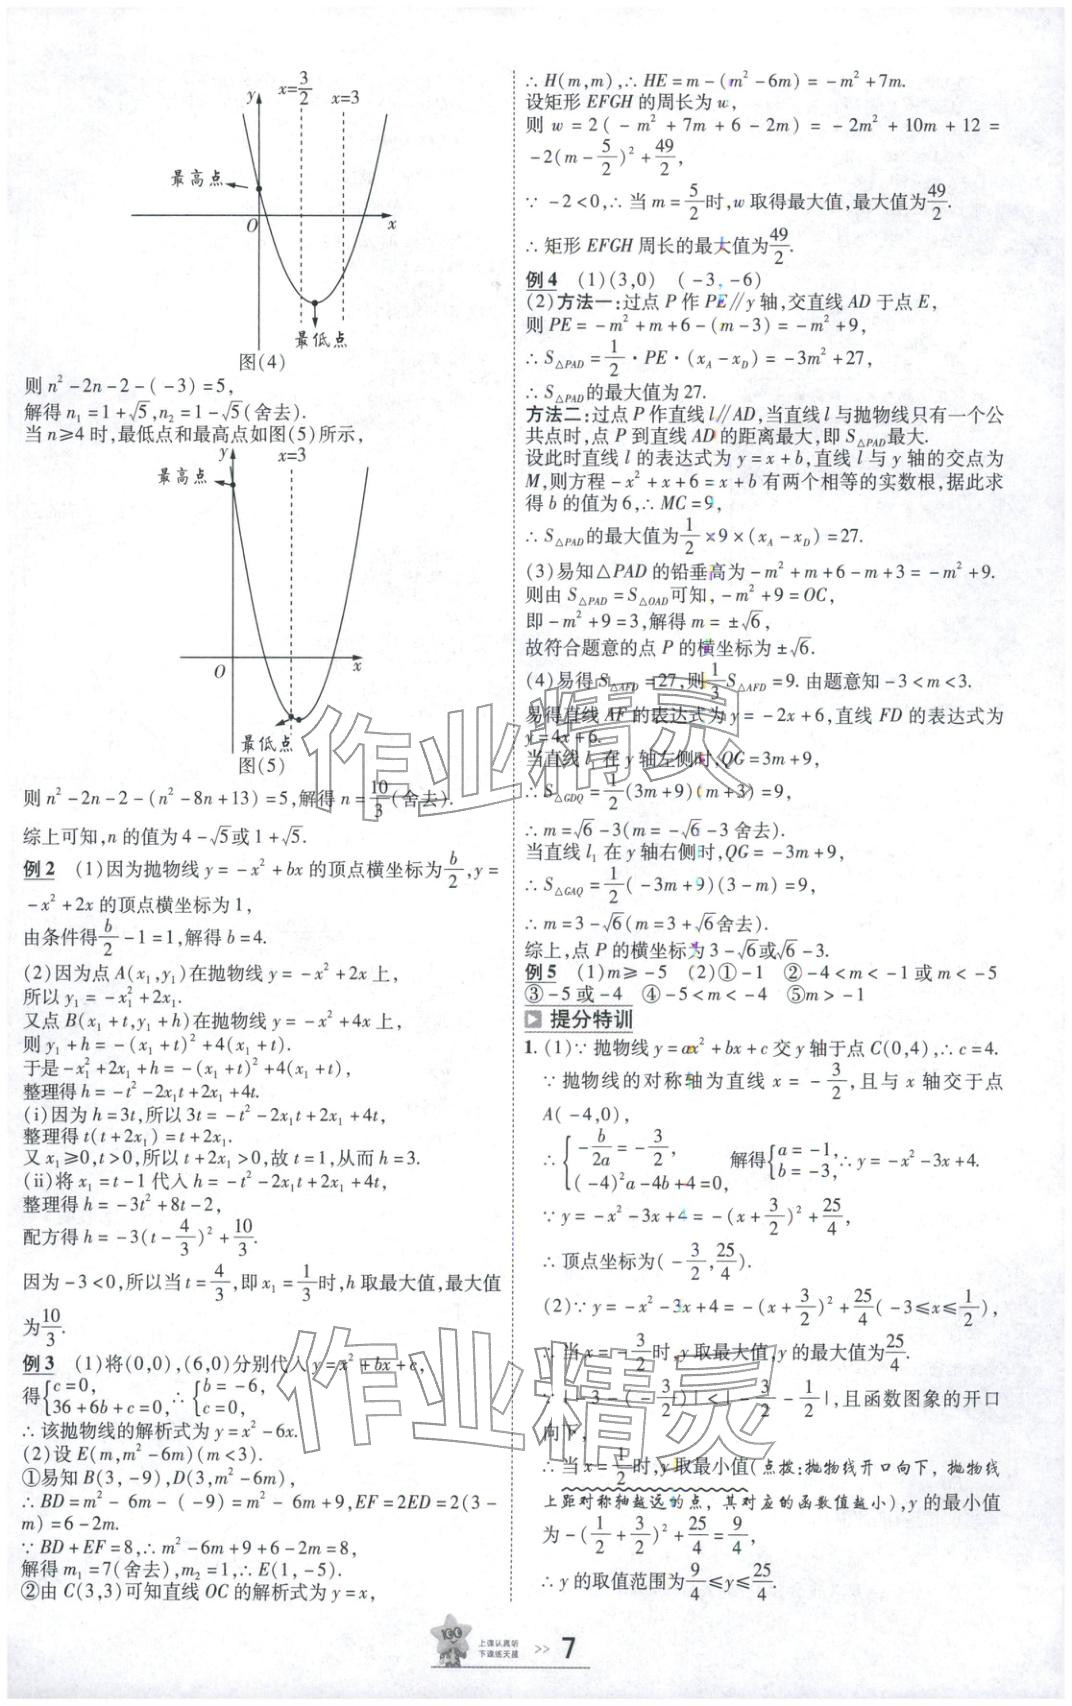 y
x=3/2
x=3
最高点
O
x
最低点
图(4)
则 n²-2n-2-(-3)=5,
解得 n₁=1+√5,n₂=1-√5(舍去).
当 n≥4 时,最低点和最高点如图(5)所示,
y
x=3
最高点
O
x
最低点
图(5)
则 n²-2n-2-(n²-8n+13)=5,解得 n=10/3(舍去).
综上可知,n 的值为 4-√5或 1+√5.
例 2 (1)因为抛物线 y=-x²+bx 的顶点横坐标为b/2,y=
-x²+2x 的顶点横坐标为 1,
由条件得b/2-1=1,解得 b=4.
(2)因为点 A(x₁,y₁)在抛物线 y=-x²+2x 上,
所以 y₁=-x₁²+2x₁.
又点 B(x₁+t,y₁+h)在抛物线 y=-x²+4x 上,
则 y₁+h=-(x₁+t)²+4(x₁+t).
于是-x₁²+2x₁+h=-(x₁+t)²+4(x₁+t),
整理得 h=-t²-2x₁t+2x₁+4t.
(i)因为 h=3t,所以 3t=-t²-2x₁t+2x₁+4t,
整理得 t(t+2x₁)=t+2x₁.
又 x₁≥0,t>0,所以 t+2x₁>0,故 t=1,从而 h=3.
(ii)将 x₁=t-1 代入 h=-t²-2x₁t+2x₁+4t,
整理得 h=-3t²+8t-2,
配方得 h=-3(t-4/3)²+10/3.
因为-3<0,所以当 t=4/3,即 x₁=1/3时,h 取最大值,最大值
为10/3.
例 3 (1)将(0,0),(6,0)分别代入 y=x²+bx+c,
得{c=0, 36+6b+c=0, ∴{b=-6, c=0,
∴该抛物线的解析式为 y=x²-6x.
(2)设 E(m,m²-6m)(m<3).
①易知 B(3,-9),D(3,m²-6m),
∴BD=m²-6m-(-9)=m²-6m+9,EF=2ED=2(3-
m)=6-2m.
∵BD+EF=8,∴m²-6m+9+6-2m=8,
解得 m₁=7(舍去),m₂=1,∴E(1,-5).
②由 C(3,3)可知直线 OC 的解析式为 y=x,
∴H(m,m),∴HE=m-(m²-6m)=-m²+7m.
设矩形 EFGH 的周长为 w,
则 w=2(-m²+7m+6-2m)=-2m²+10m+12=
-2(m-5/2)²+49/2,
∵-2<0,∴当 m=5/2时,w 取得最大值,最大值为49/2.
∴矩形 EFGH 周长的最大值为49/2.
例 4 (1)(3,0) (-3,-6)
(2)方法一:过点 P 作 PE∥y 轴,交直线 AD 于点 E,
则 PE=-m²+m+6-(m-3)=-m²+9,
∴S△PAD=1/2·PE·(x_A-x_D)=-3m²+27,
∴S△PAD的最大值为 27.
方法二:过点 P 作直线 l∥AD,当直线 l 与抛物线只有一个公
共点时,点 P 到直线 AD 的距离最大,即 S△PAD最大.
设此时直线 l 的表达式为 y=x+b,直线 l 与 y 轴的交点为
M,则方程-x²+x+6=x+b 有两个相等的实数根,据此求
得 b 的值为 6,∴MC=9,
∴S△PAD的最大值为1/2×9×(x_A-x_D)=27.
(3)易知△PAD 的铅垂高为-m²+m+6-m+3=-m²+9.
则由 S△PAD=S△OAD可知,-m²+9=OC,
即-m²+9=3,解得 m=±√6,
故符合题意的点 P 的横坐标为±√6.
(4)易得 S△AFD=27,则1/3S△AFD=9. 由题意知-3<m<3.
易得直线 AF 的表达式为 y=-2x+6,直线 FD 的表达式为
y=4x+6.
当直线 l₁ 在 y 轴左侧时,QG=3m+9,
∴S△GDQ=1/2(3m+9)(m+3)=9,
∴m=√6-3(m=-√6-3 舍去).
当直线 l₁ 在 y 轴右侧时,QG=-3m+9,
∴S△GAQ=1/2(-3m+9)(3-m)=9,
∴m=3-√6(m=3+√6舍去).
综上,点 P 的横坐标为 3-√6或√6-3.
例 5 (1)m≥-5 (2)①-1 ②-4<m<-1 或 m<-5
③-5 或-4 ④-5<m<-4 ⑤m>-1
提分特训
1. (1)∵抛物线 y=ax²+bx+c 交 y 轴于点 C(0,4),∴c=4.
∵抛物线的对称轴为直线 x=-3/2,且与 x 轴交于点
A(-4,0),
∴{-b/2a=-3/2, (-4)²a-4b+4=0, 解得{a=-1, b=-3, ∴y=-x²-3x+4.
∵y=-x²-3x+4=-(x+3/2)²+25/4,
∴顶点坐标为(-3/2,25/4).
(2)∵y=-x²-3x+4=-(x+3/2)²+25/4(-3≤x≤1/2),
∴当 x=-3/2时,y 取最大值,y 的最大值为25/4.
∵|-3-(-3/2)|<|-3/2-1/2|,且函数图象的开口
向下,
∴当 x=1/2时,y 取最小值(点拨:抛物线开口向下,抛物线
上距对称轴越远的点,其对应的函数值越小),y 的最小值
为-(1/2+3/2)²+25/4=9/4,
∴y 的取值范围为9/4≤y≤25/4.
作业精灵
作业精灵
上课认真听
下课练天晨
>> 7